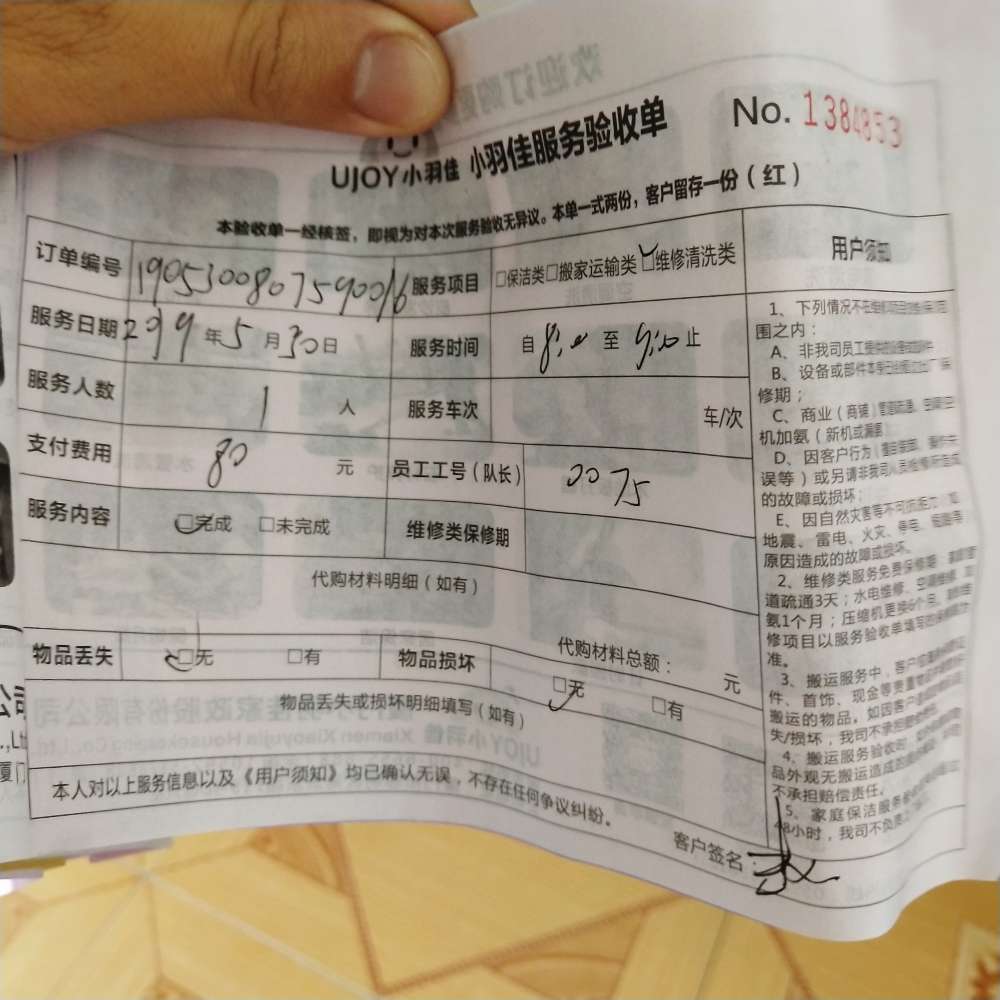 No. 1384853
UJOY小羽佳 小羽佳服务验收单
本验收单一经核签，即视为对本次服务验收无异议。本单一式两份，客户留存一份（红）
订单编号 190530080759006 服务项目 □保洁类□搬家运输类□维修清洗类
服务日期 2019年5月30日 服务时间 自8:00至9:00止
服务人数 1 人 服务车次 车/次
支付费用 80 元 员工工号（队长） 0075
服务内容 □完成 □未完成 维修类保修期
代购材料明细（如有）
代购材料总额： 元
物品丢失 □无 □有 物品损坏 □无 □有
物品丢失或损坏明细填写（如有）
本人对以上服务信息以及《用户须知》均已确认无误，不存在任何争议纠纷。
客户签名：
用户须知
1、下列情况不在维修项目的保修范
围之内：
A、非我司员工提供的
B、设备或部件本身已
修期；
C、商业（商铺）管道疏通、空调
机加氨（新机或漏氨）
D、因客户行为（
误等）或另请非我司人员
的故障或损坏；
E、因自然灾害等不可抗能力，如
地震、雷电、火灾、停电、
原因造成的故障或损坏。
2、维修类服务免费保修期：
道疏通3天；水电维修、空调维修、加
氨1个月；压缩机更换6个月。
修项目以服务验收单填写的
准。
3、搬运服务中，客户应
件、首饰、现金等贵重
搬运的物品。如因客户
失/损坏，我司不承担
4、搬运服务验收时，
品外观无搬运造成的
不承担赔偿责任。
5、家庭保洁服务
48小时，我司不负责
公司
厦门